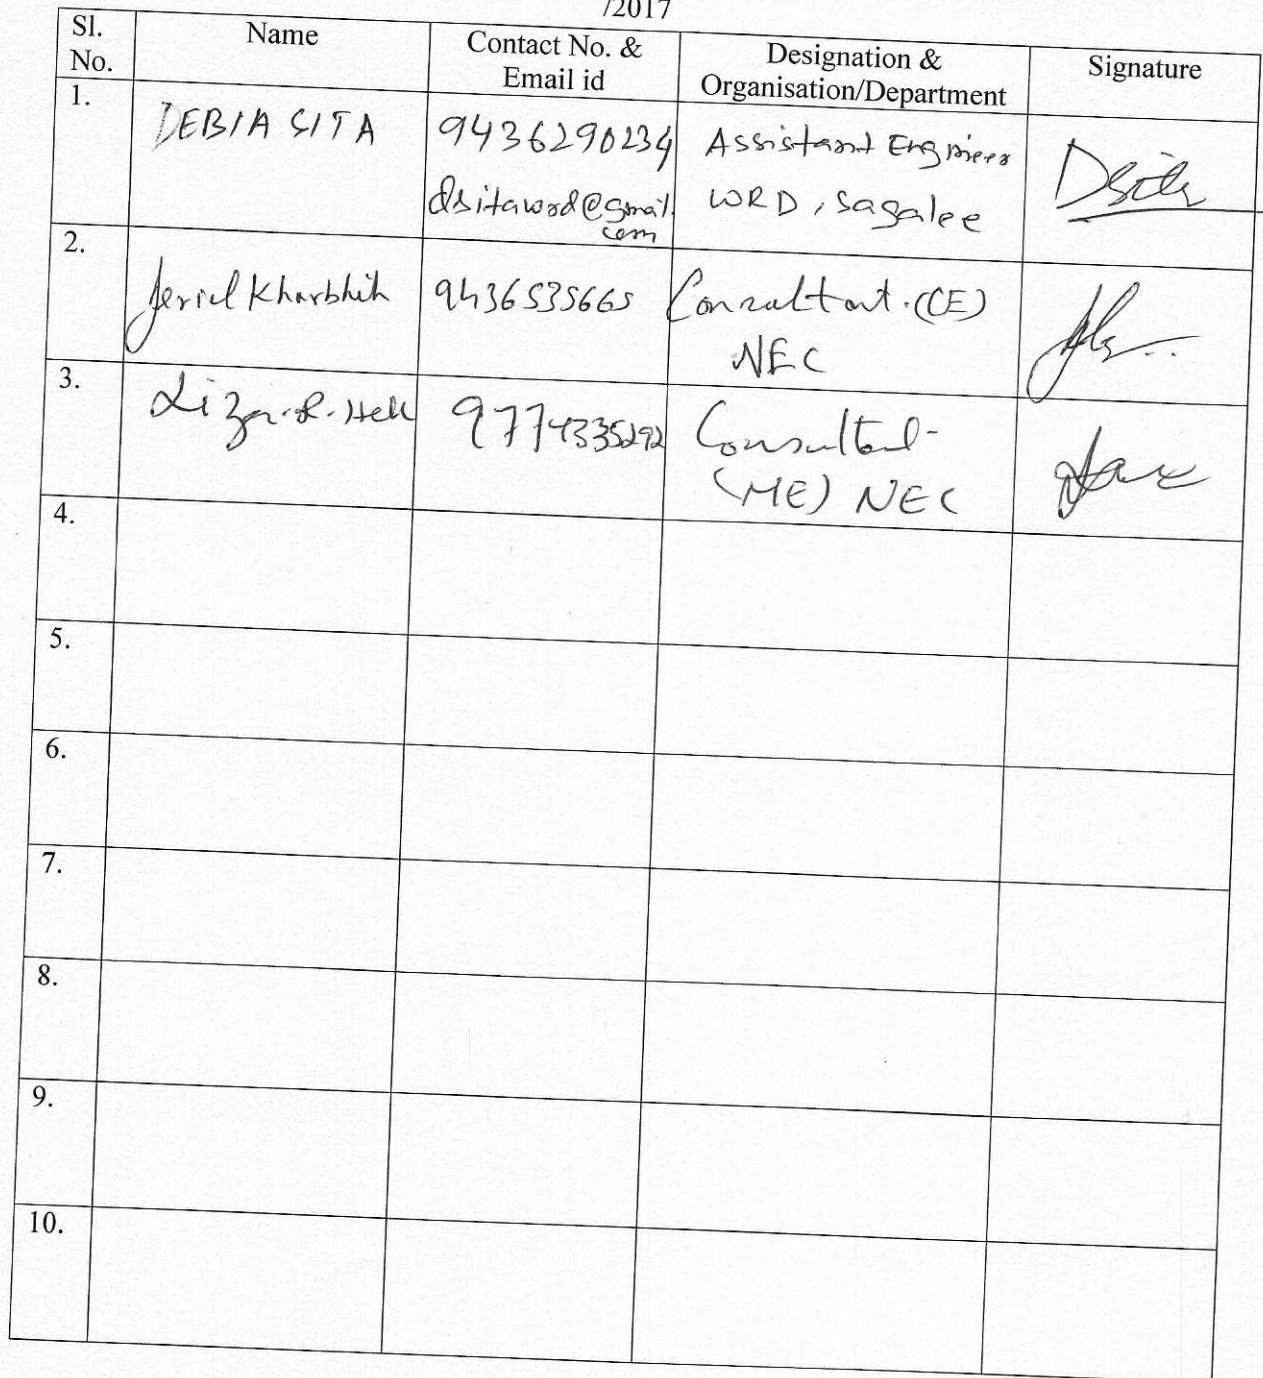 /2017
Sl. No.
Name
Contact No. & Email id
Designation & Organisation/Department
Signature
1.
DEBIA SITA
9436290234
dsitawrd@gmail.
com
Assistant Engineer
WRD, Sagalee
Dsita
2.
Jeriel Kharbhih
9436535665
Consultant (CE)
NEC
3.
Liza R.
9774335292
Consultant
(ME) NEC
4.
5.
6.
7.
8.
9.
10.